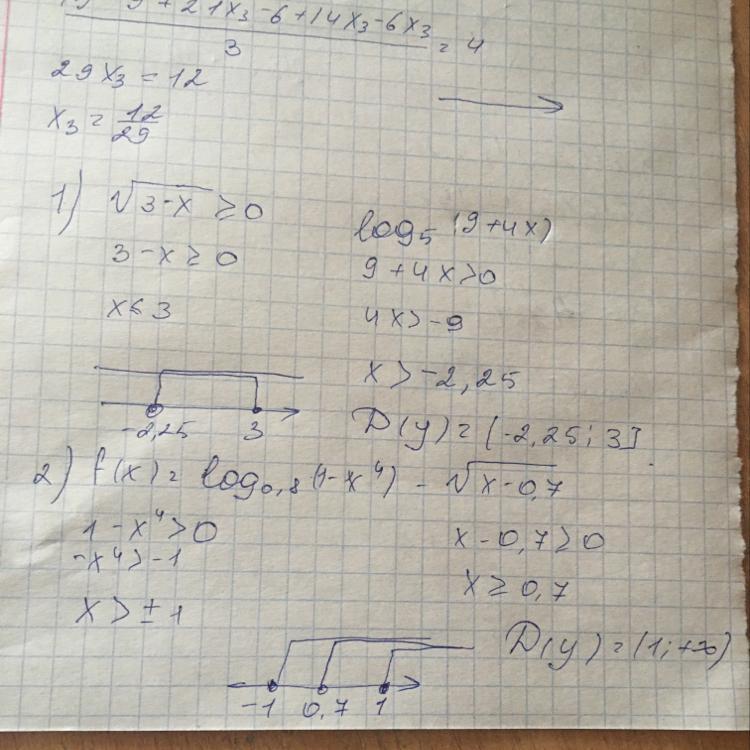 9 + 21x₃ - 6 + 14x₃ - 6x₃
3
= 4
29x₃ = 12
x₃ = 12/29
1) √3-x ≥ 0
3 - x ≥ 0
x ≤ 3
log₅ (9+4x)
9 + 4x > 0
4x > -9
x > -2,25
-2,25 3
D(y) = [-2,25; 3]
2) f(x) = log₀,₈ (1-x⁴) - √x-0,7
1 - x⁴ > 0
-x⁴ > -1
x > ± 1
x - 0,7 ≥ 0
x ≥ 0,7
-1 0,7 1
D(y) = (1; +∞)